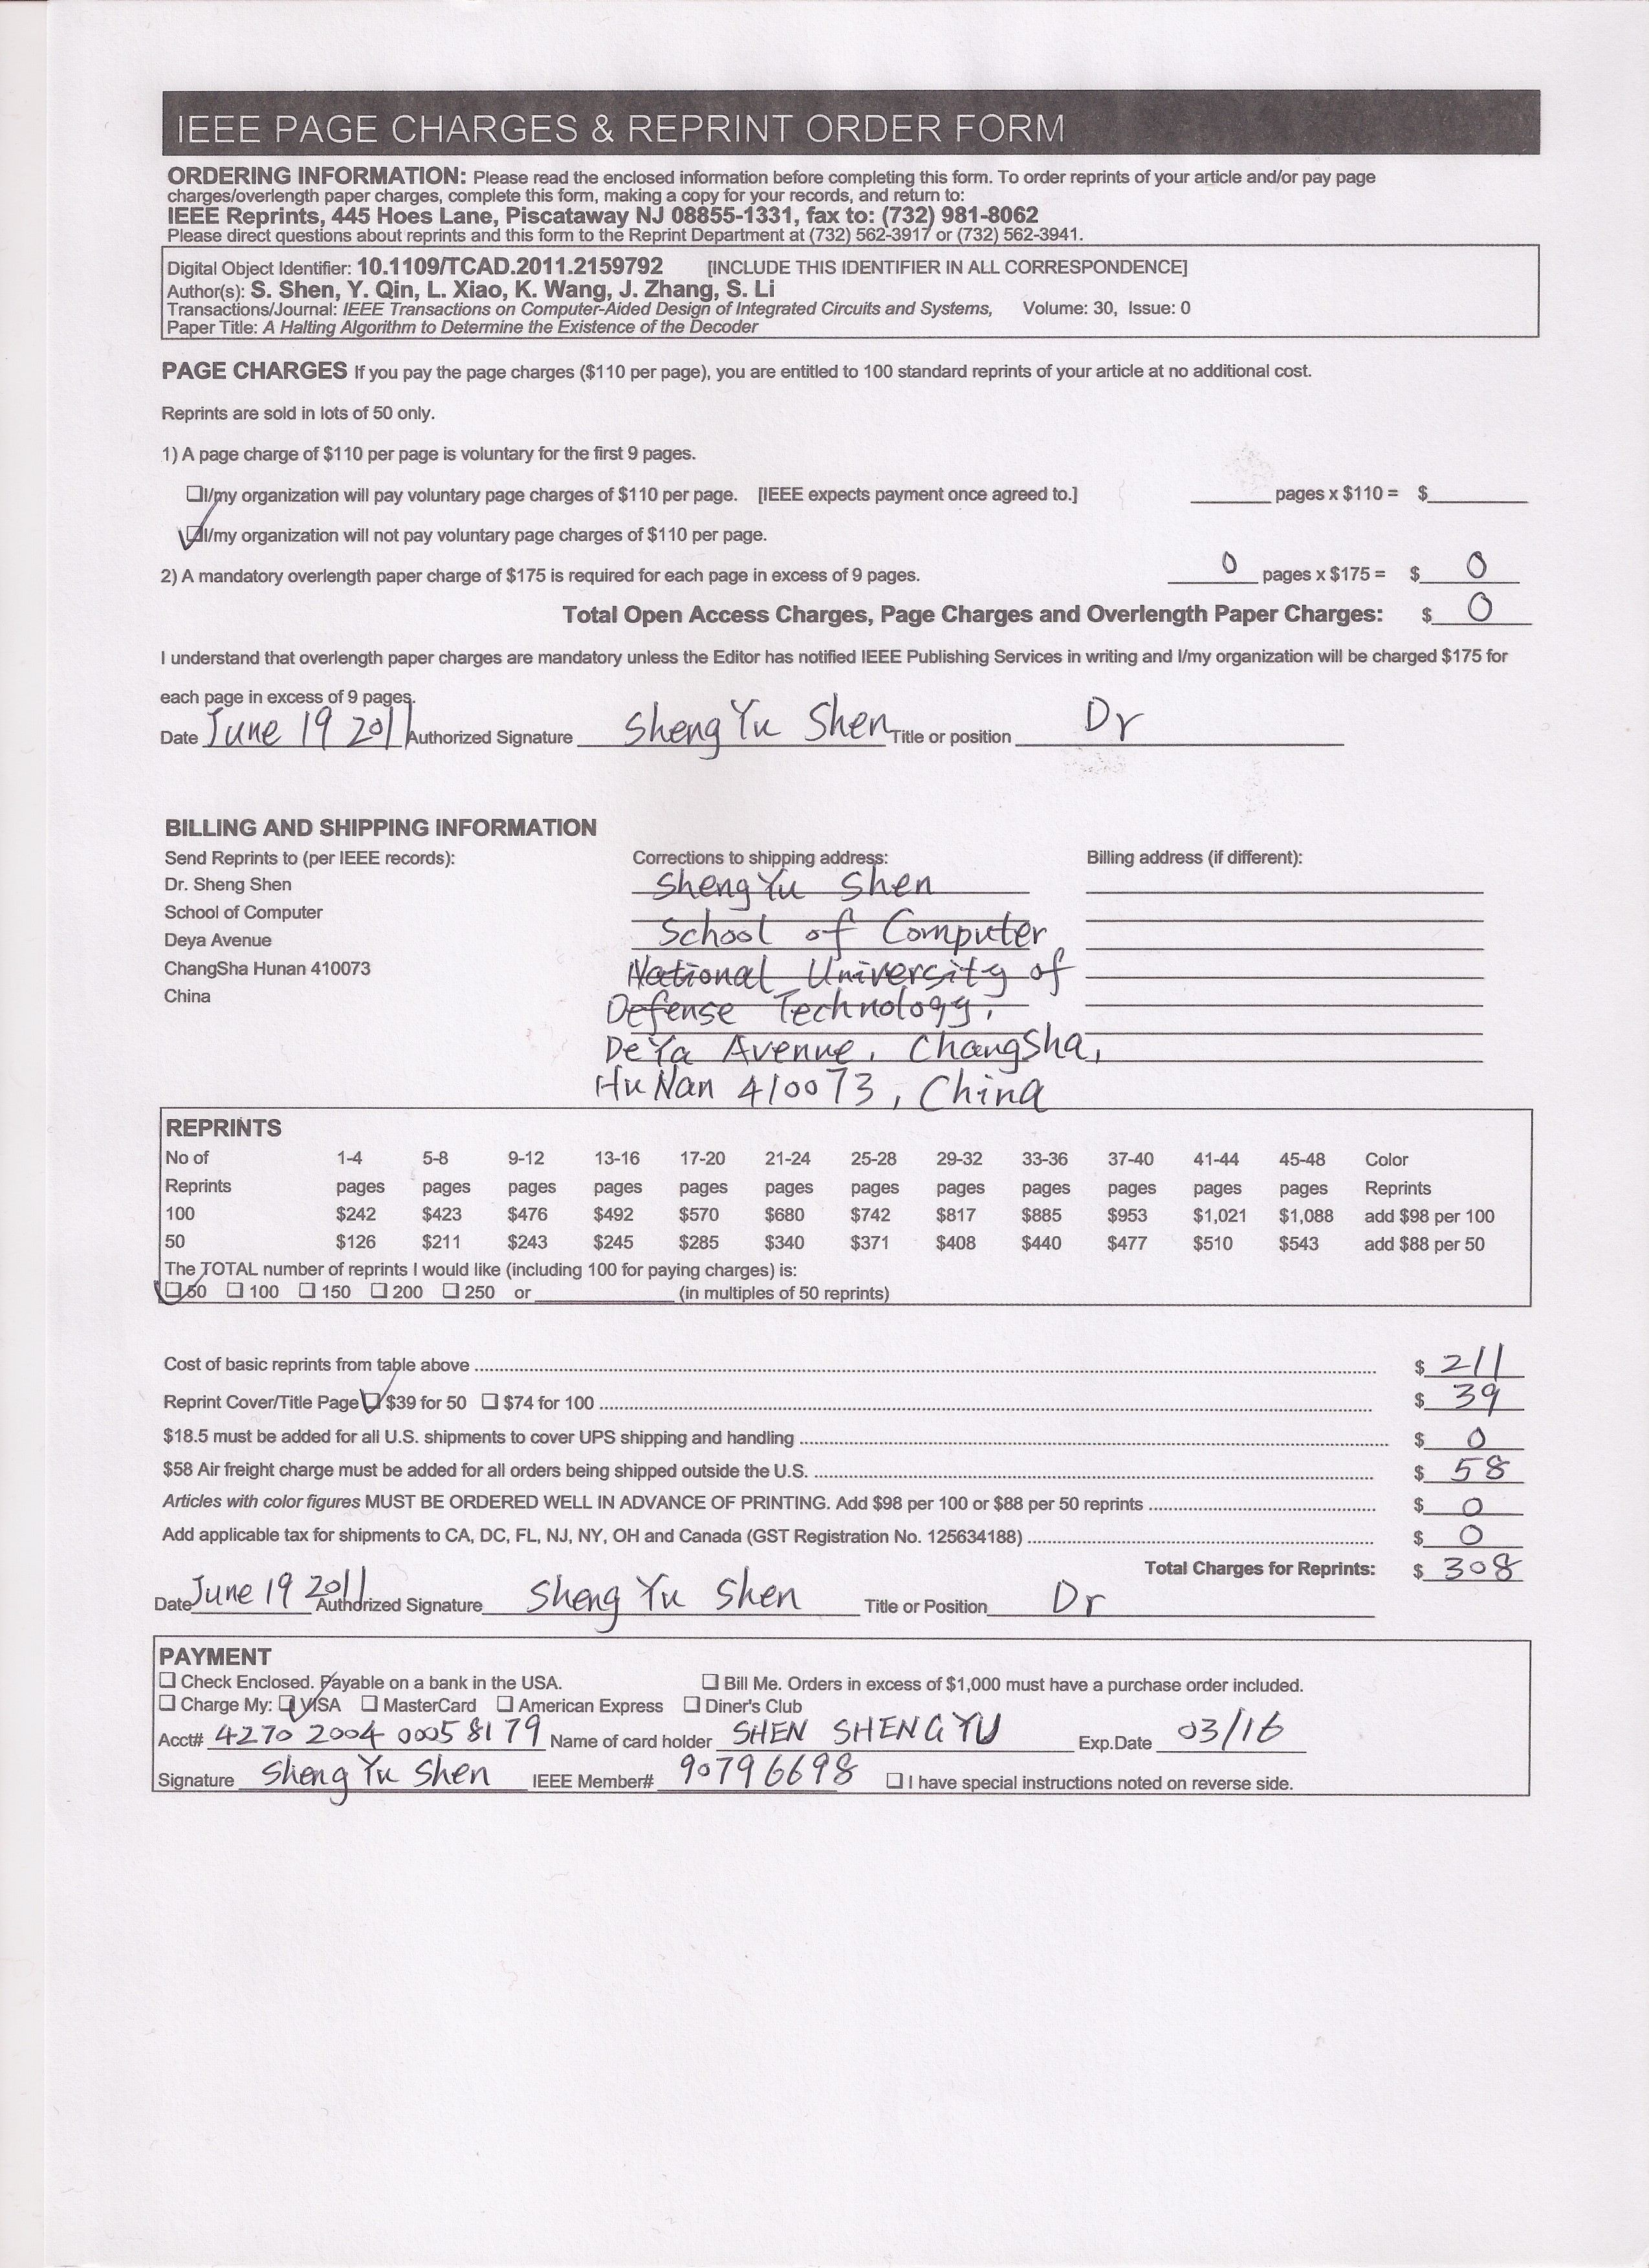 IEEE PAGE CHARGES & REPRINT ORDER FORM
ORDERING INFORMATION: Please read the enclosed information before completing this form. To order reprints of your article and/or pay page
charges/overlength paper charges, complete this form, making a copy for your records, and return to:
IEEE Reprints, 445 Hoes Lane, Piscataway NJ 08855-1331, fax to: (732) 981-8062
Please direct questions about reprints and this form to the Reprint Department at (732) 562-3917 or (732) 562-3941.
Digital Object Identifier: 10.1109/TCAD.2011.2159792 [INCLUDE THIS IDENTIFIER IN ALL CORRESPONDENCE]
Author(s): S. Shen, Y. Qin, L. Xiao, K. Wang, J. Zhang, S. Li
Transactions/Journal: IEEE Transactions on Computer-Aided Design of Integrated Circuits and Systems, Volume: 30, Issue: 0
Paper Title: A Halting Algorithm to Determine the Existence of the Decoder
PAGE CHARGES If you pay the page charges ($110 per page), you are entitled to 100 standard reprints of your article at no additional cost.
Reprints are sold in lots of 50 only.
1) A page charge of $110 per page is voluntary for the first 9 pages.
I/my organization will pay voluntary page charges of $110 per page. [IEEE expects payment once agreed to.] pages x $110 = $
I/my organization will not pay voluntary page charges of $110 per page.
2) A mandatory overlength paper charge of $175 is required for each page in excess of 9 pages. 0 pages x $175 = $ 0
Total Open Access Charges, Page Charges and Overlength Paper Charges: $ 0
I understand that overlength paper charges are mandatory unless the Editor has notified IEEE Publishing Services in writing and I/my organization will be charged $175 for
each page in excess of 9 pages.
Date June 19 2011 Authorized Signature ShengYu Shen Title or position Dr
BILLING AND SHIPPING INFORMATION
Send Reprints to (per IEEE records): Corrections to shipping address: Billing address (if different):
Dr. Sheng Shen ShengYu Shen
School of Computer School of Computer
Deya Avenue National University of
ChangSha Hunan 410073 Defense Technology,
China DeYa Avenue, ChangSha,
HuNan 410073, China
REPRINTS
No of 1-4 5-8 9-12 13-16 17-20 21-24 25-28 29-32 33-36 37-40 41-44 45-48 Color
Reprints pages pages pages pages pages pages pages pages pages pages pages pages Reprints
100 $242 $423 $476 $492 $570 $680 $742 $817 $885 $953 $1,021 $1,088 add $98 per 100
50 $126 $211 $243 $245 $285 $340 $371 $408 $440 $477 $510 $543 add $88 per 50
The TOTAL number of reprints I would like (including 100 for paying charges) is:
50 100 150 200 250 or (in multiples of 50 reprints)
Cost of basic reprints from table above $ 211
Reprint Cover/Title Page $39 for 50 $74 for 100 $ 39
$18.5 must be added for all U.S. shipments to cover UPS shipping and handling $ 0
$58 Air freight charge must be added for all orders being shipped outside the U.S. $ 58
Articles with color figures MUST BE ORDERED WELL IN ADVANCE OF PRINTING. Add $98 per 100 or $88 per 50 reprints $ 0
Add applicable tax for shipments to CA, DC, FL, NJ, NY, OH and Canada (GST Registration No. 125634188) $ 0
Total Charges for Reprints: $ 308
Date June 19 2011 Authorized Signature Sheng Yu Shen Title or Position Dr
PAYMENT
Check Enclosed. Payable on a bank in the USA. Bill Me. Orders in excess of $1,000 must have a purchase order included.
Charge My: VISA MasterCard American Express Diner's Club
Acct# 4270 2004 0005 8179 Name of card holder SHEN SHENGYU Exp.Date 03/16
Signature Sheng Yu Shen IEEE Member# 90796698 I have special instructions noted on reverse side.